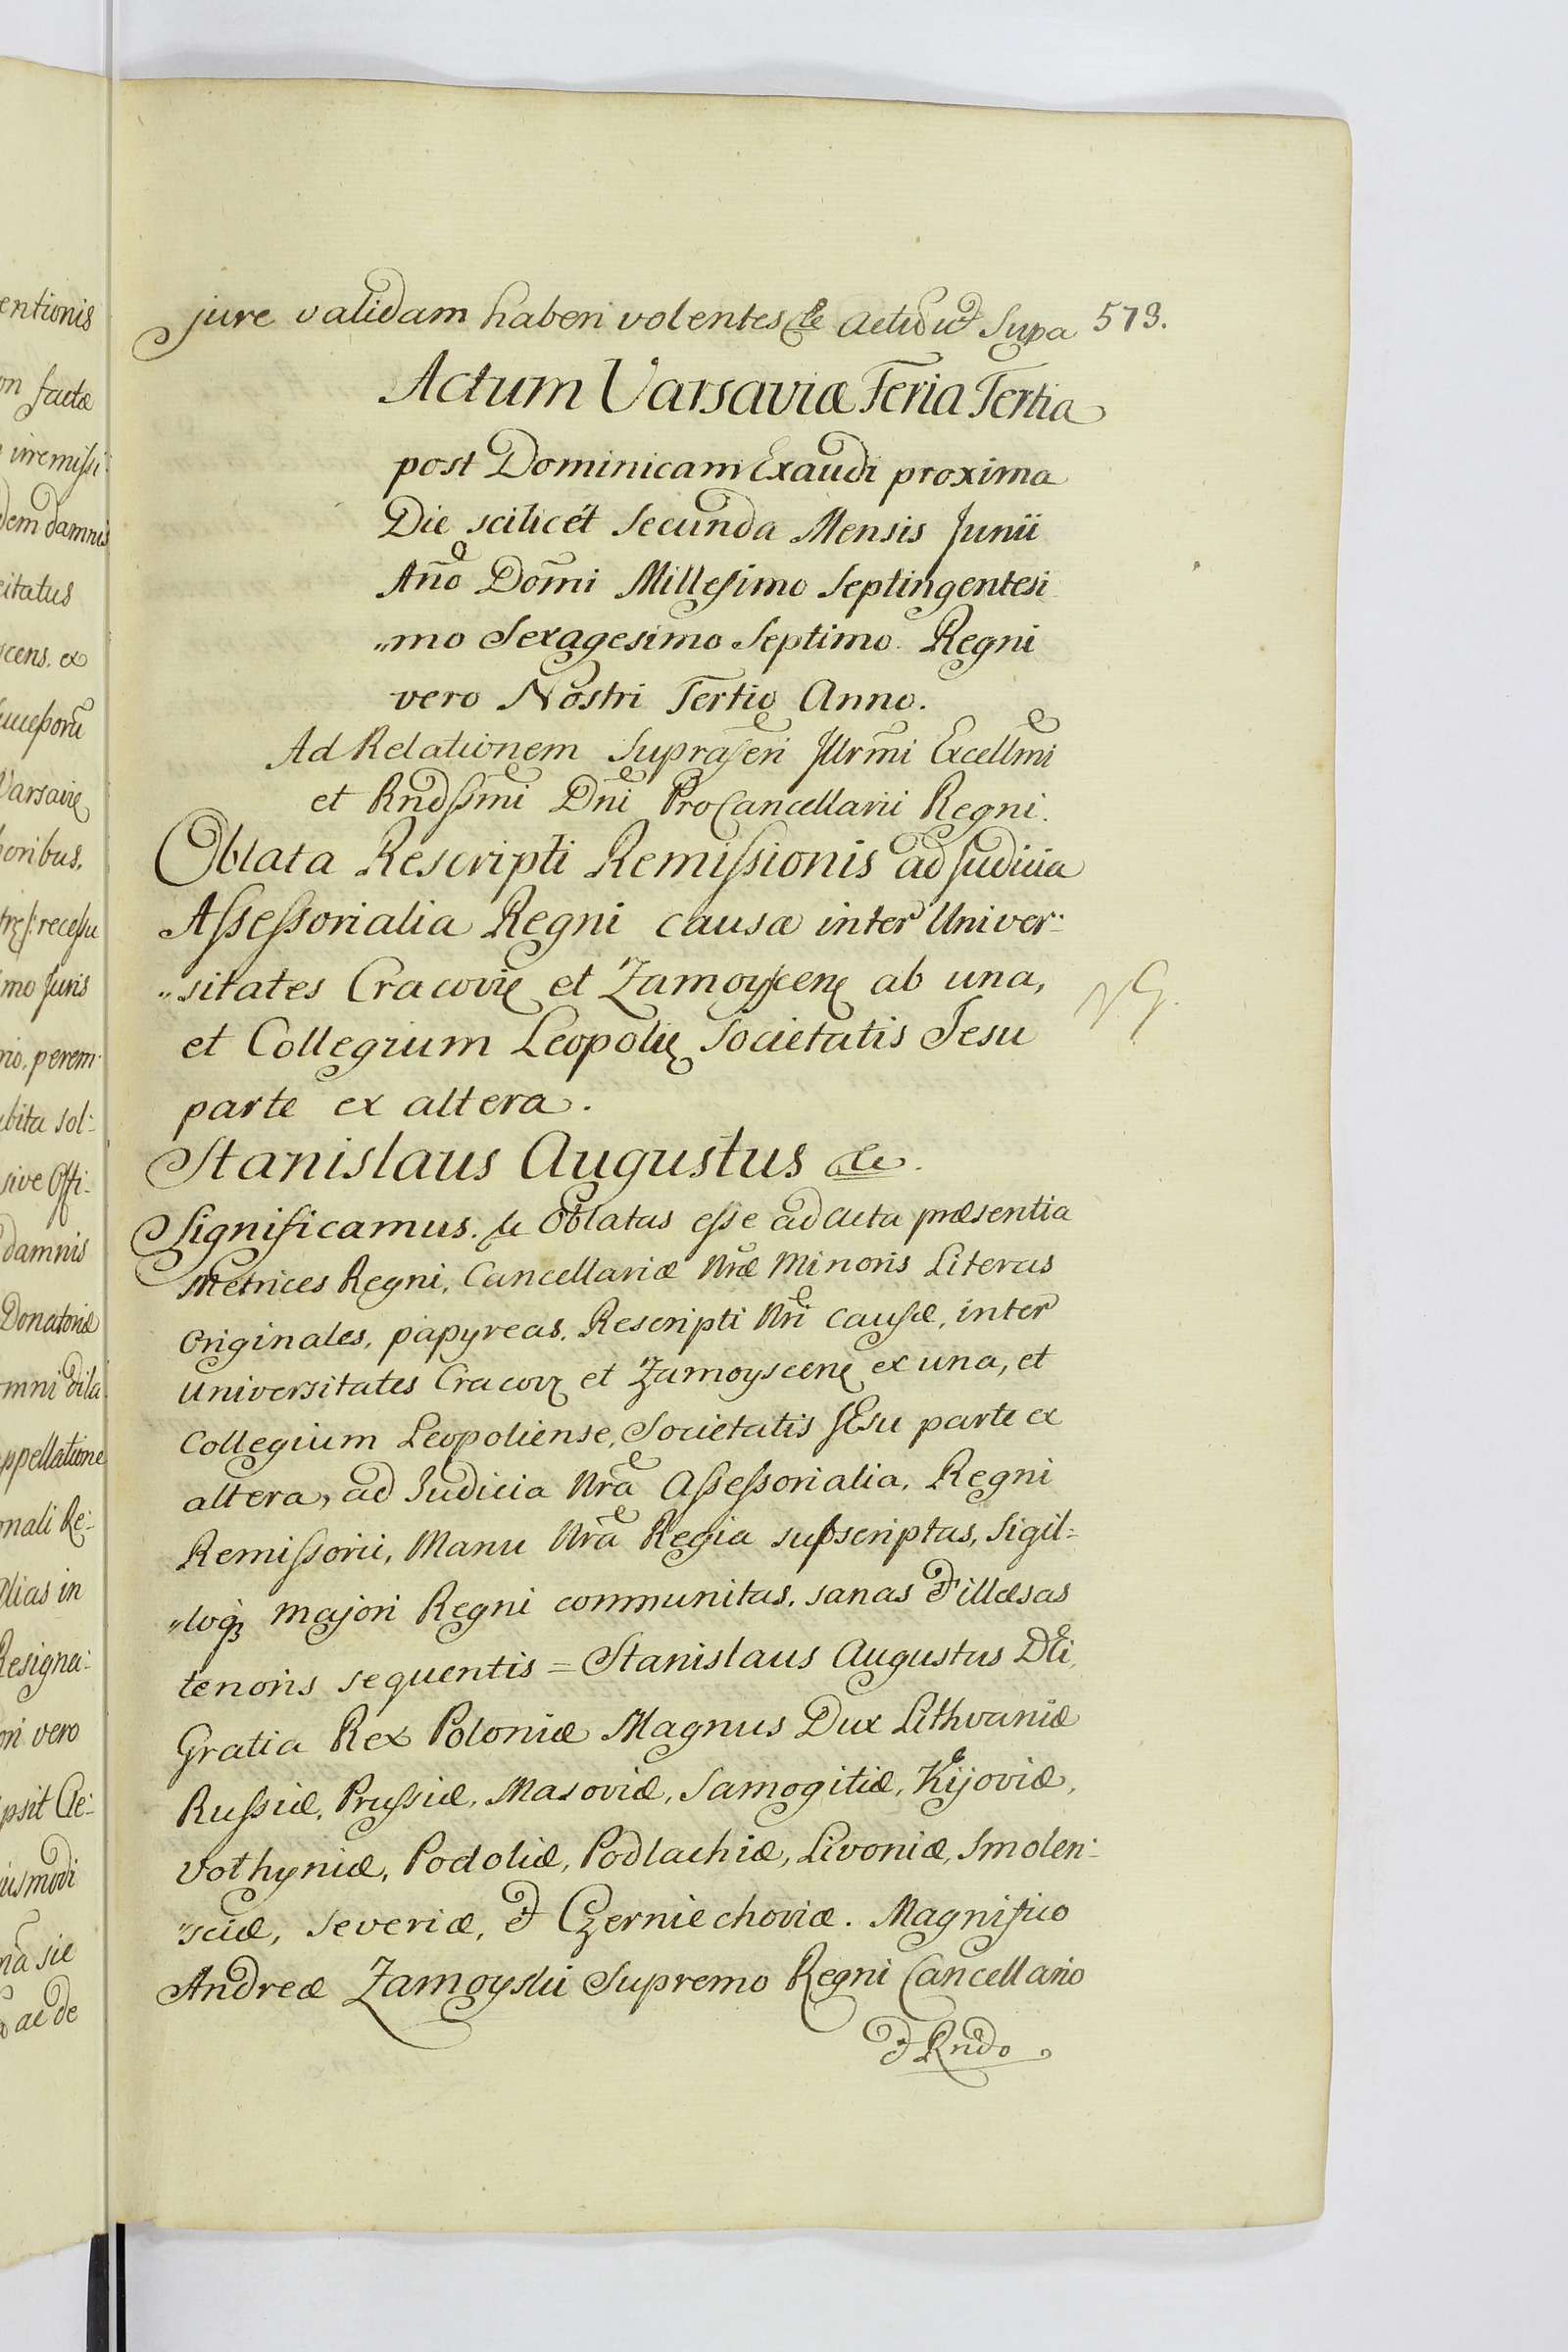 entionis
on factæ
irremissi:
dem damnis
citatus
scens. ex
uccessorũ
Varsavię
horibus,
recessu
mo Juris
rio, perem:
bita sol:
sive Offi:
damnis
Donatoriæ
mni dila
ppellatione
onali Re:
alias in
Resigna:
ori vero
psit Cle:
iusmodi
nã sic
ac de
jure validam haberi volentes &c Actũ ut Supa 573.
Actum Varsaviæ Feria Tertia
post Dominicam Exaudi proxima
Die scilicét Secunda Mensis Junii
Año Domĩ Millesimo Septingentesi
„mo Sexagesimo Septimo. Regni
vero Nostri Tertio Anno.
Ad Relationem Suprascri Illrm̃i Excellm̃i
et Rndssm̃i Dnĩ ProCancellarii Regni.
Oblata Rescripti Remissionis ad Judicia
Assessorialia Regni causæ inter Univer:
„sitates Cracovię et Zamoyscenę ab una,
et Collegium Leopolię Societatis Jesu
parte ex altera.
Stanislaus Augustus &c.
Significamus. &c Oblatas esse ad acta præsentia
Metrices Regni, Cancellariæ Nr̃æ Minoris Literas
Originales, papyreas, Rescripti Nr̃i causæ, inter
Universitates Cracovę et Zamoyscenę ex una, et
Collegium Leopoliense, Societatis JEsu parte ex
altera, ad Judicia Nr̃a Assessorialia, Regni
Remissorii, Manu Nr̃a Regia subscriptas, Sigil=
„loq̃ʒ majori Regni communitas, sanas & illæsas
tenoris sequentis = Stanislaus Augustus DEi
Gratia Rex Poloniæ Magnus Dux Lithvaniæ
Russiæ, Prussiæ, Masoviæ, Samogitiæ, Kijoviæ,
Volhyniæ, Podoliæ, Podlachiæ, Livoniæ, Smolen:
„sciæ, Severiæ, & Czerniechoviæ. Magnifico
Andreæ Zamoyski Supremo Regni Cancellario
& Rndo